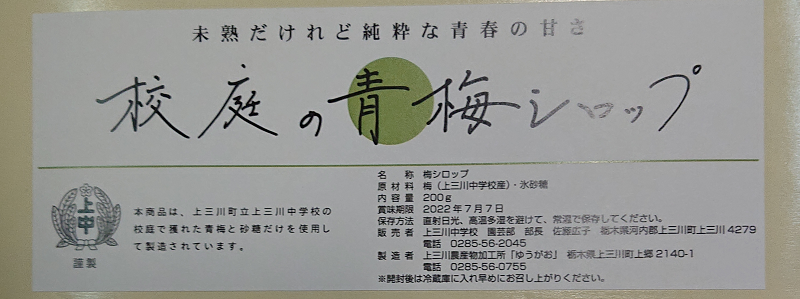 未熟だけれど純粋な青春の甘さ
校庭の青梅シロップ
上中
謹製
本商品は、上三川町立上三川中学校の
校庭で獲れた青梅と砂糖だけを使用し
て製造されています。
名　称　梅シロップ
原 材 料　梅（上三川中学校産）・氷砂糖
内 容 量　200ｇ
賞味期限　2022年7月7日
保存方法　直射日光、高温多湿を避けて、常温で保存してください。
販 売 者　上三川中学校　園芸部　部長　佐藤広子　栃木県河内郡上三川町上三川 4279
電話　0285-56-2045
製 造 者　上三川農産物加工所「ゆうがお」 栃木県上三川町上郷 2140-1
電話　0285-56-0755
※開封後は冷蔵庫に入れ早めにお召し上がりください。